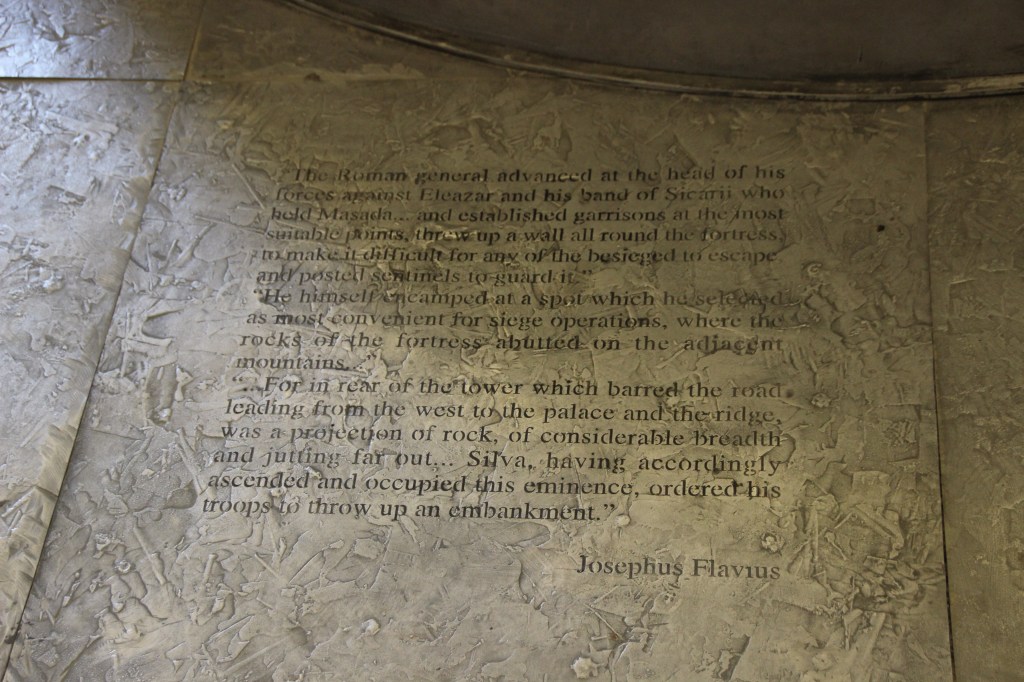 "The Roman general advanced at the head of his
forces against Eleazar and his band of Sicarii who
held Masada... and established garrisons at the most
suitable points, threw up a wall all round the fortress,
to make it difficult for any of the besieged to escape
and posted sentinels to guard it."
"He himself encamped at a spot which he selected
as most convenient for siege operations, where the
rocks of the fortress abutted on the adjacent
mountains..."
"...For in rear of the tower which barred the road
leading from the west to the palace and the ridge,
was a projection of rock, of considerable breadth
and jutting far out... Silva, having accordingly
ascended and occupied this eminence, ordered his
troops to throw up an embankment."
Josephus Flavius